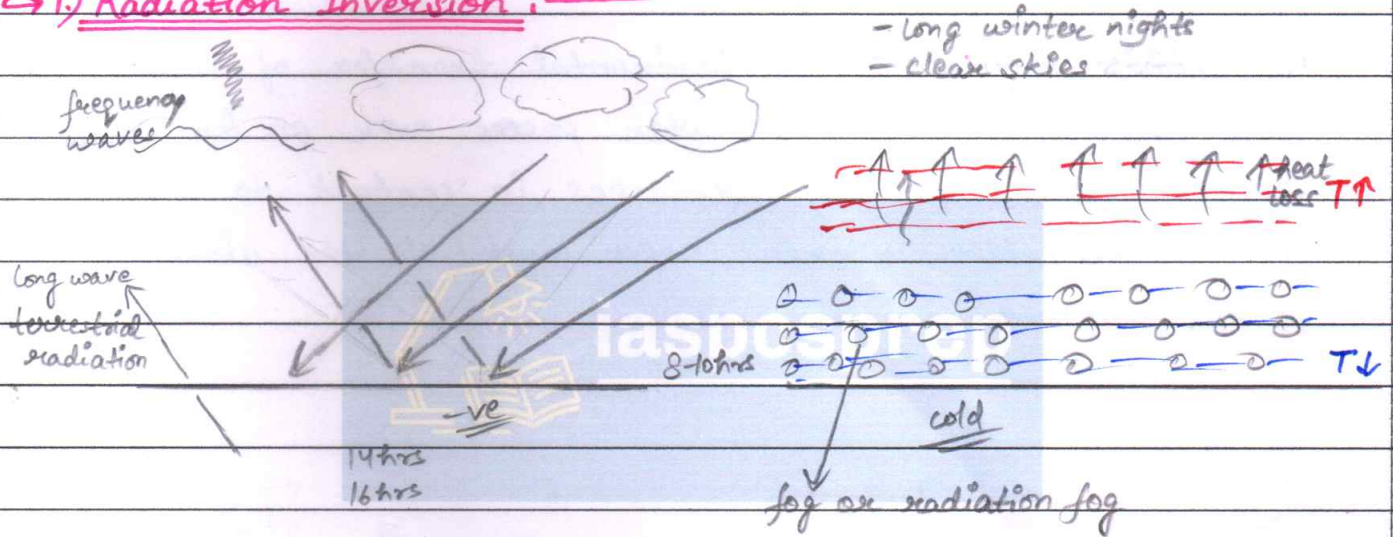 ↳ 1.) Radiation Inversion :
- long winter nights
- clear skies
frequency
waves
heat
loss T↑
long wave
terrestrial
radiation
iaspcsprep
8-10hrs
T↓
-ve
cold
14hrs
16hrs
fog or radiation fog